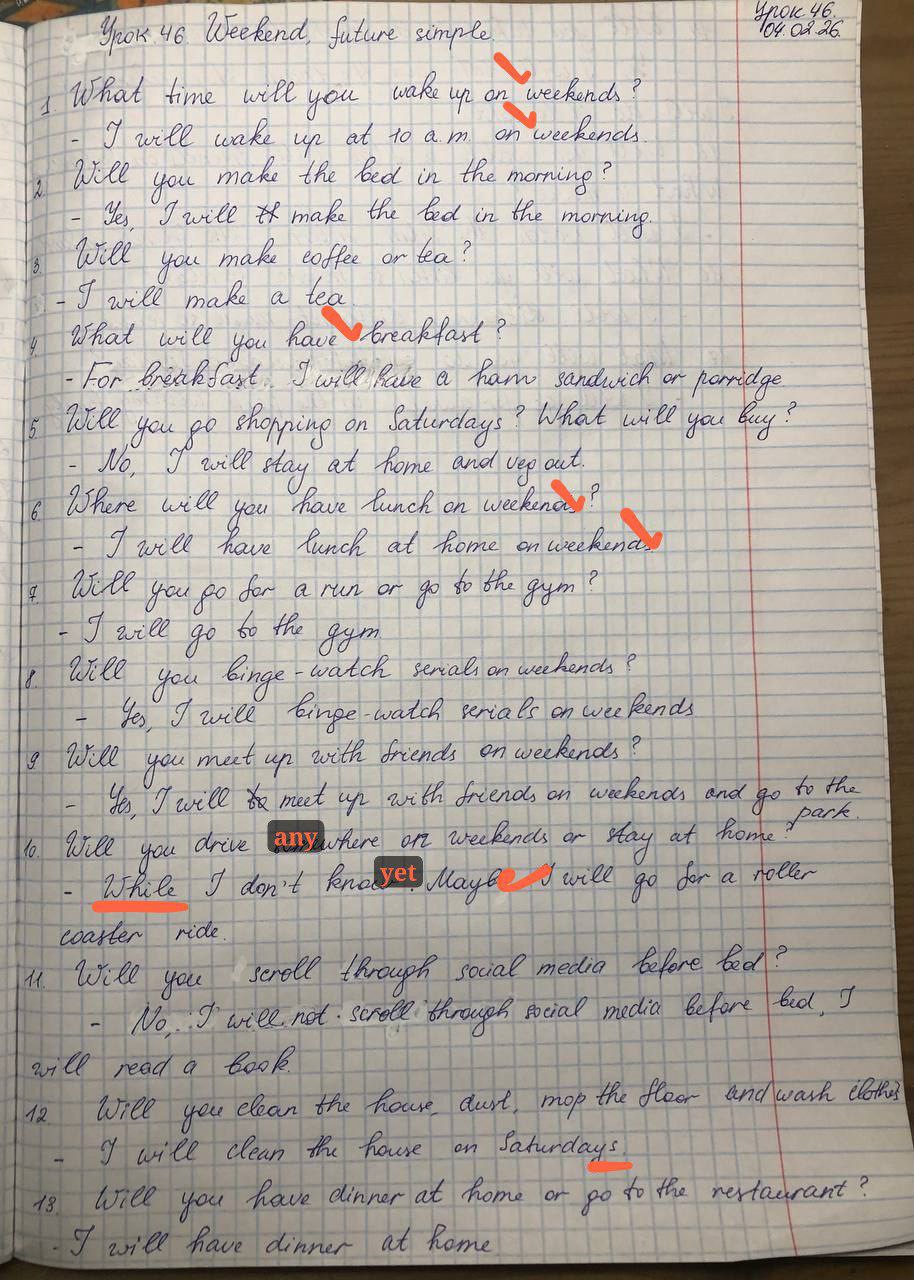 Урок 46. Weekend, future simple.
Урок 46.
04.02.26.
1. What time will you wake up on weekends?
- I will wake up at 10 a.m. on weekends.
2. Will you make the bed in the morning?
- Yes, I will make the bed in the morning.
3. Will you make coffee or tea?
- I will make a tea.
4. What will you have breakfast?
- For breakfast I will have a ham sandwich or porridge.
5. Will you go shopping on Saturdays? What will you buy?
- No, I will stay at home and veg out.
6. Where will you have lunch on weekends?
- I will have lunch at home on weekends
7. Will you go for a run or go to the gym?
- I will go to the gym.
8. Will you binge-watch serials on weekends?
- Yes, I will binge-watch serials on weekends
9. Will you meet up with friends on weekends?
- Yes, I will meet up with friends on weekends and go to the
park.
10. Will you drive anywhere on weekends or stay at home?
- While I don't know yet. Maybe I will go for a roller
coaster ride.
11. Will you scroll through social media before bed?
- No, I will not scroll through social media before bed, I
will read a book.
12. Will you clean the house, dust, mop the floor and wash clothes
- I will clean the house on Saturdays.
13. Will you have dinner at home or go to the restaurant?
- I will have dinner at home